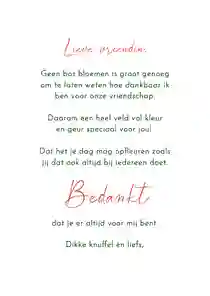 Lieve vriendin,
Geen bos bloemen is groot genoeg
om te laten weten hoe dankbaar ik
ben voor onze vriendschap.
Daarom een heel veld vol kleur
en geur speciaal voor jou!
Dat het je dag mag opfleuren zoals
jij dat ook altijd bij iedereen doet.
Bedankt
dat je er altijd voor mij bent
Dikke knuffel en liefs,